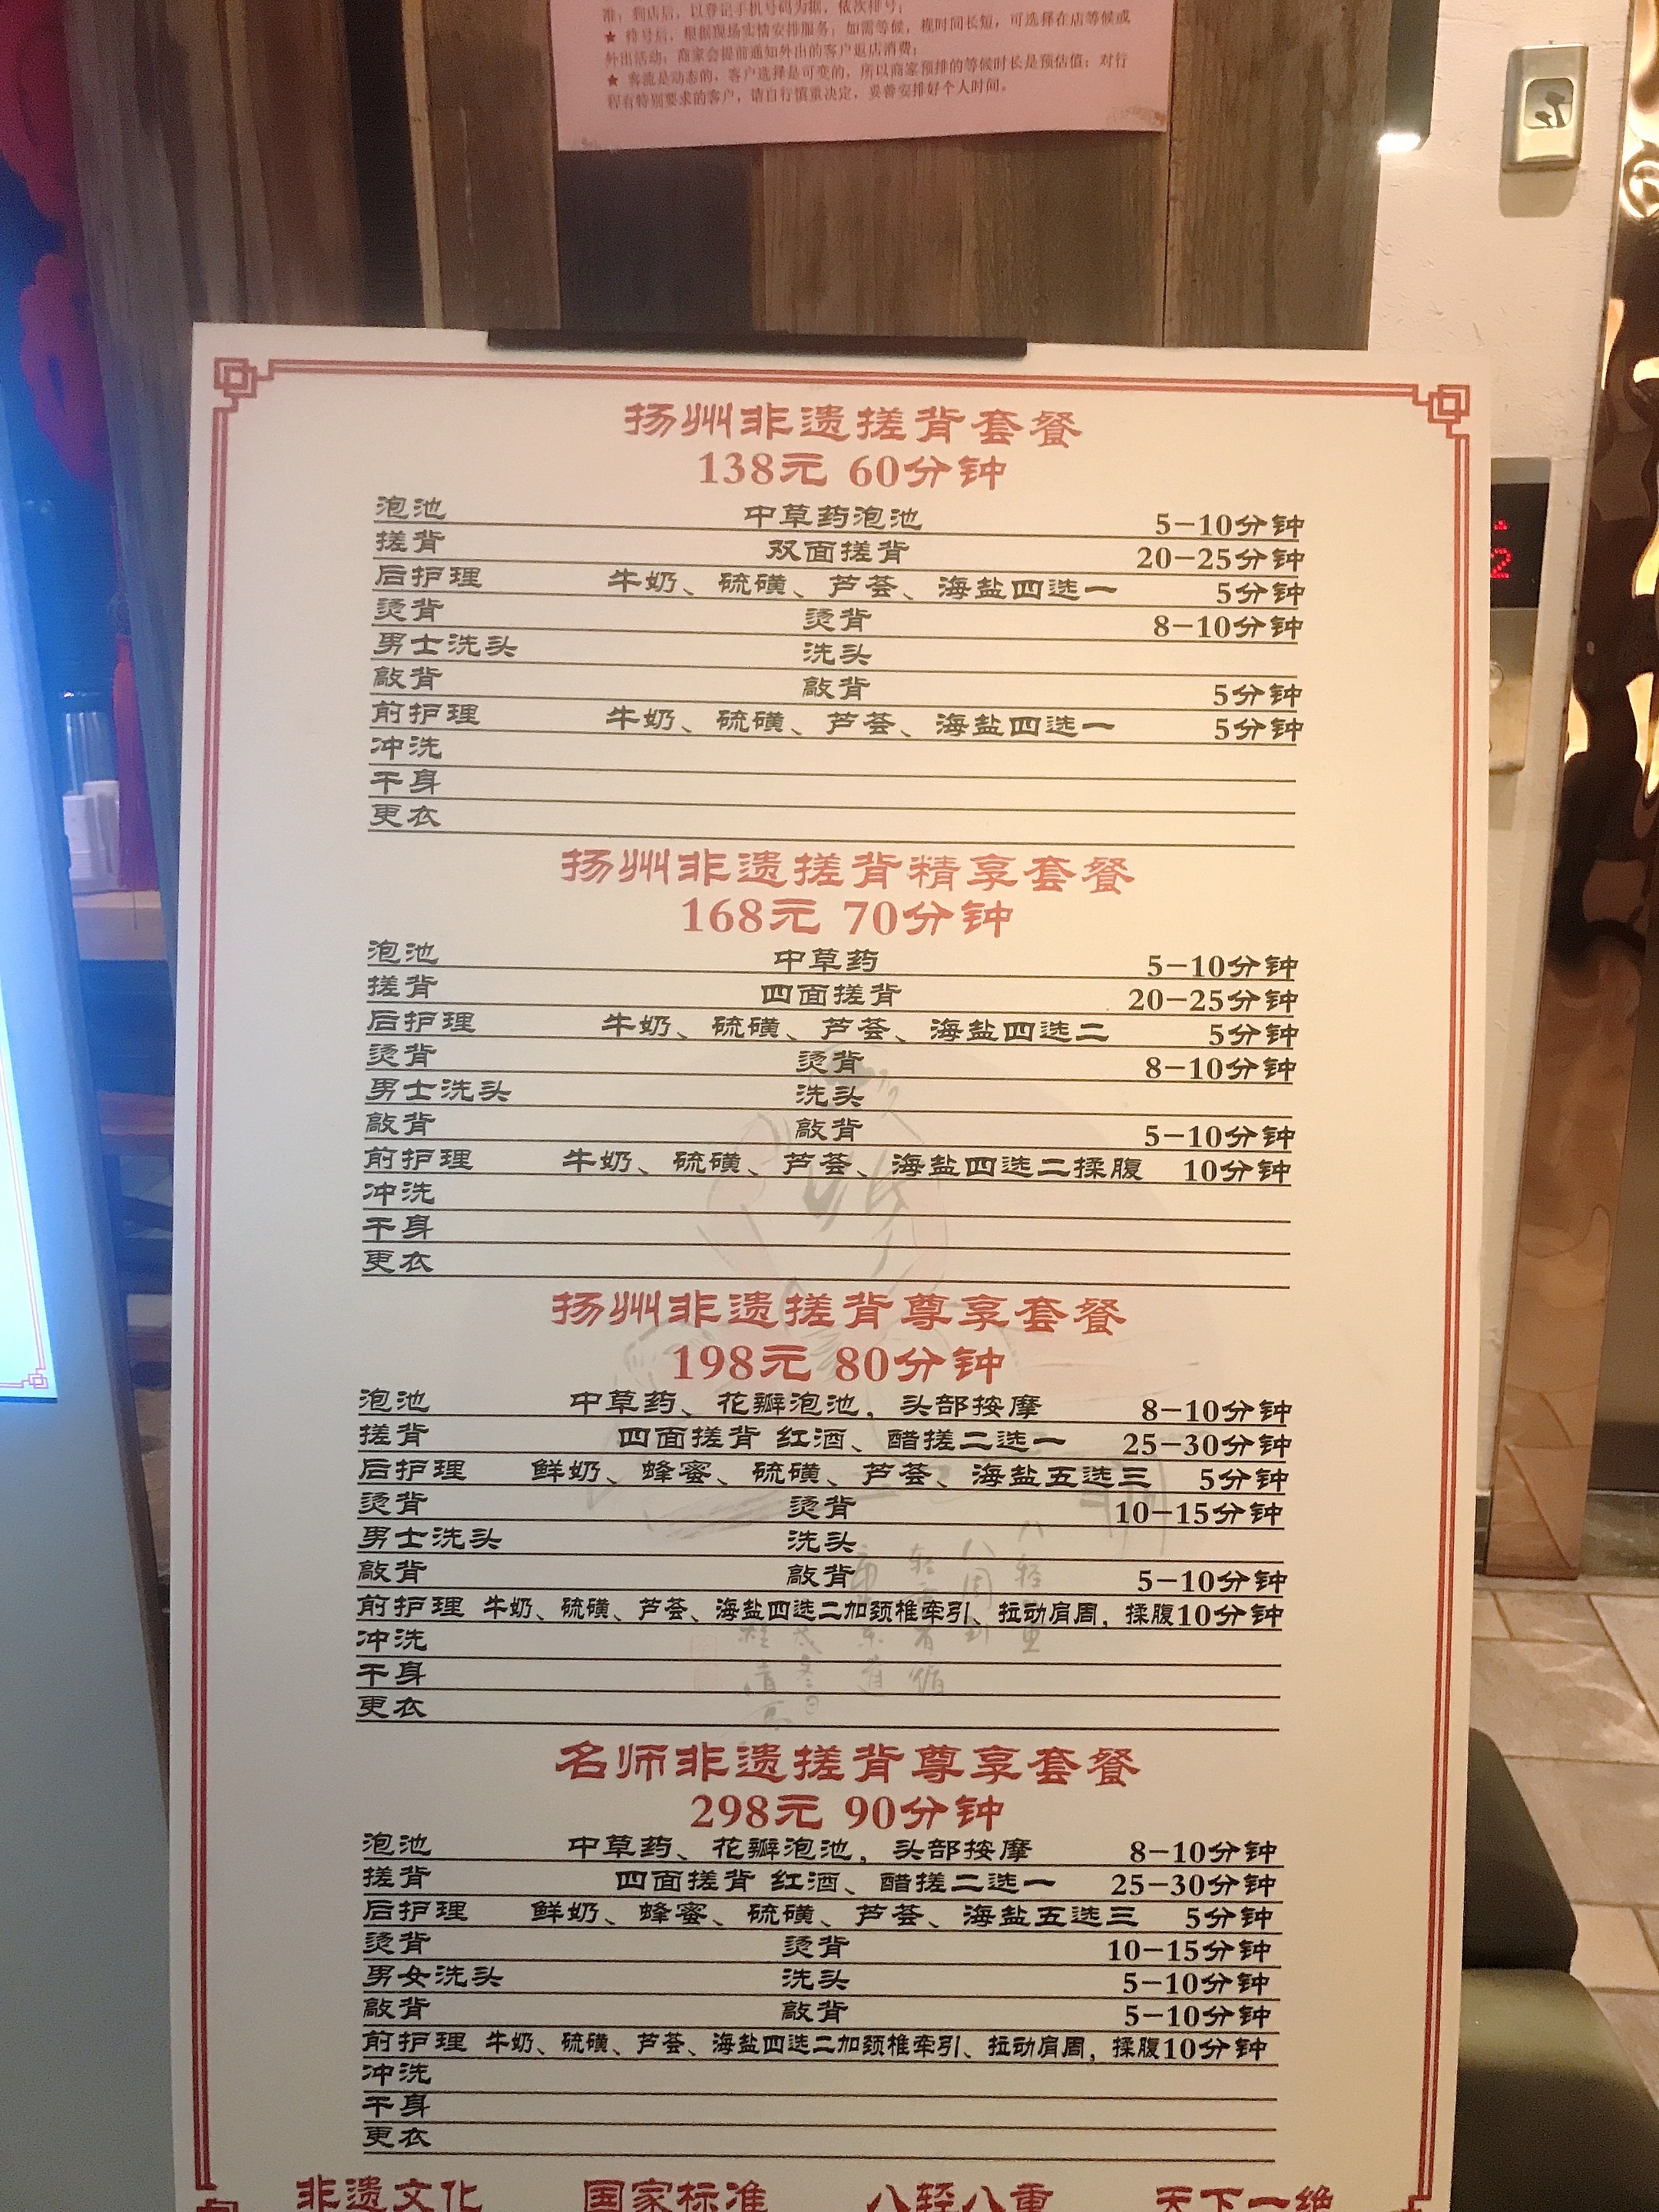 准；到店后，以登记手机号码为据，依次排号；
★ 待号后，根据现场实情安排服务；如需等候，视时间长短，可选择在店等候或
外出活动；商家会提前通知外出的客户返店消费；
★ 客流是动态的，客户选择是可变的，所以商家预排的等候时长是预估值；对行
程有特别要求的客户，请自行慎重决定，妥善安排好个人时间。
扬州非遗搓背套餐
138元 60分钟
泡池 中草药泡池 5-10分钟
搓背 双面搓背 20-25分钟
后护理 牛奶、硫磺、芦荟、海盐四选一 5分钟
烫背 烫背 8-10分钟
男士洗头 洗头
敲背 敲背 5分钟
前护理 牛奶、硫磺、芦荟、海盐四选一 5分钟
冲洗
干身
更衣
扬州非遗搓背精享套餐
168元 70分钟
泡池 中草药 5-10分钟
搓背 四面搓背 20-25分钟
后护理 牛奶、硫磺、芦荟、海盐四选二 5分钟
烫背 烫背 8-10分钟
男士洗头 洗头
敲背 敲背 5-10分钟
前护理 牛奶、硫磺、芦荟、海盐四选二揉腹 10分钟
冲洗
干身
更衣
扬州非遗搓背尊享套餐
198元 80分钟
泡池 中草药、花瓣泡池，头部按摩 8-10分钟
搓背 四面搓背 红酒、醋搓二选一 25-30分钟
后护理 鲜奶、蜂蜜、硫磺、芦荟、海盐五选三 5分钟
烫背 烫背 10-15分钟
男士洗头 洗头
敲背 敲背 5-10分钟
前护理 牛奶、硫磺、芦荟、海盐四选二加颈椎牵引、拉动肩周，揉腹10分钟
冲洗
干身
更衣
名师非遗搓背尊享套餐
298元 90分钟
泡池 中草药、花瓣泡池，头部按摩 8-10分钟
搓背 四面搓背 红酒、醋搓二选一 25-30分钟
后护理 鲜奶、蜂蜜、硫磺、芦荟、海盐五选三 5分钟
烫背 烫背 10-15分钟
男女洗头 洗头 5-10分钟
敲背 敲背 5-10分钟
前护理 牛奶、硫磺、芦荟、海盐四选二加颈椎牵引、拉动肩周，揉腹10分钟
冲洗
干身
更衣
非遗文化 国家标准 八轻八重 天下一绝
2